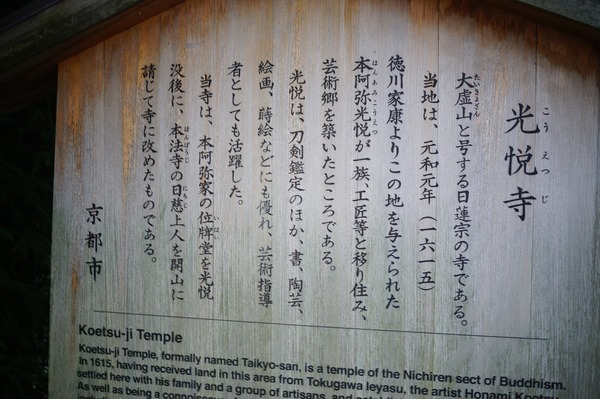 光悦寺
こうえつじ
大虚山と号する日蓮宗の寺である。
たいきょざん
当地は、元和元年(一六一五)
徳川家康よりこの地を与えられた
本阿弥光悦が一族、工匠等と移り住み、
ほんあみこうえつ
芸術郷を築いたところである。
光悦は、刀剣鑑定のほか、書、陶芸、
絵画、蒔絵などにも優れ、芸術指導
者としても活躍した。
当寺は、本阿弥家の位牌堂を光悦
いはい
没後に、本法寺の日慈上人を開山に
ほんぽうじ
にちじ
請じて寺に改めたものである。
京都市
Koetsu-ji Temple
Koetsu-ji Temple, formally named Taikyo-san, is a temple of the Nichiren sect of Buddhism.
In 1615, having received land in this area from Tokugawa Ieyasu, the artist Honami Koetsu
settled here with his family and a group of artisans, and
As well as being a